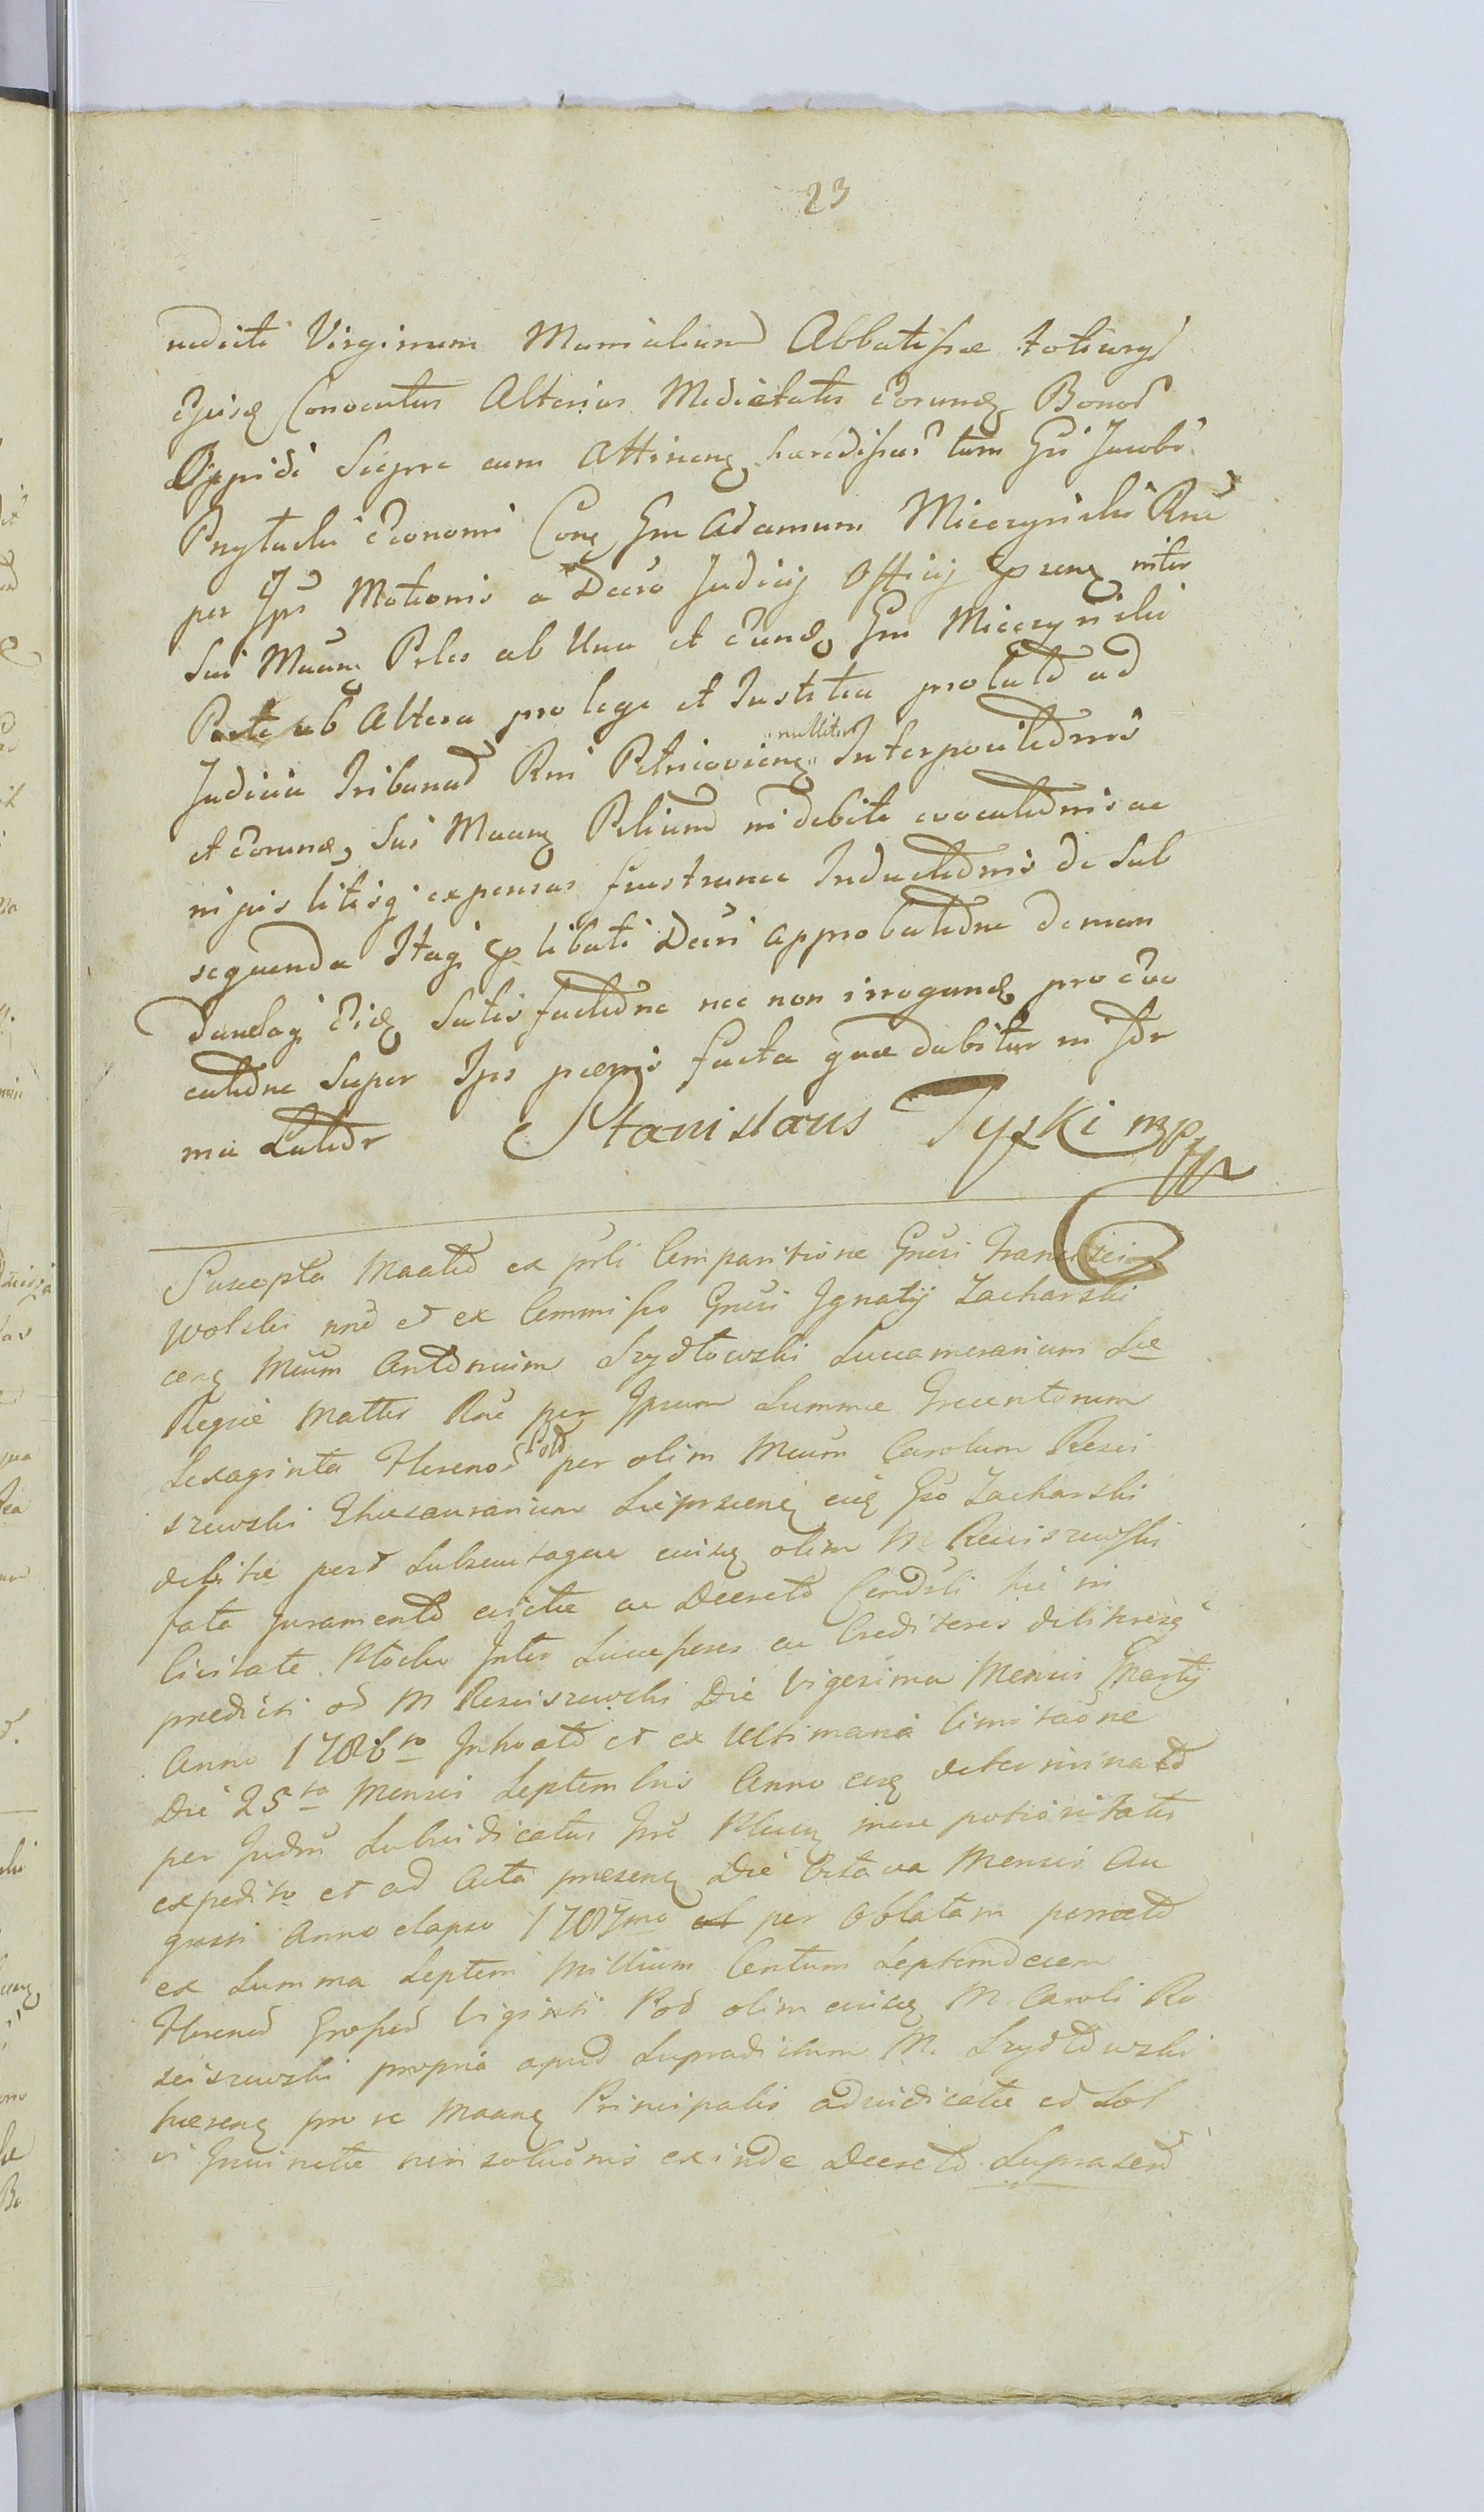 23
nedicti Virginum Monialium Abbatissæ totiusq
ejusq Conventus Alterius Medietatis eorunq Bonor
Oppidi Sierpc cum Attinenq hæredissar tum Gsi Jacobi
Przyłuski Economi Conq Gm Adamum Mieczyński Rnu
per Ips Motionis a Decro Judicij Officij præsenq inter
Sui Muanq Ptes ab Una et eunq Gm Mieczyński
Parte ab Altera pro lege et Justitia prolato ad
Judicia Tribunal Rni Petricoviens nulliter Interpositionis
et eorunq Sui Muanq Ptium indebite evocationis ac
in jus litisq expensas frustranee Inductionis de Sub
sequenda Itaq prælibati Decri approbatione deman
dandaq eidq Satisfactione nec non irroganq pro evo
catione Super Ips præmis facta quæ dabitur in Ter
mino Latior Stanislaus Tyski mpp
Suscepta Maato ex prli Comparitione Gnrsi Francisci
Wolski nno et ex Commisso Gnrsi Ignatij Zacharski
cenq Mcum Antonium Szydłowski Succamerarium Sæ
Regiæ Mattis Rnu per Ipsum Summæ Trecentorum
Sexaginta Florenor Pol per olim Mcum Carolum Rosci
szewski Thesaurarium Sierpscenq eidq Gso Zacharski
debitæ perq Subsecutaque ejusq olim M Rosciszewski
fata Juramento evictæ ac Decreto Condscli hic in
Civitate Płocka Inter Successores ac Creditores deliteresq
prædicti od M Rosciszewski Die Vigesima Mensis Martij
Anno 1786to Inhoato et ex Ultimaria limitatione
Die 25ta Mensis Septembris Anno eoq determinato
per Judm Subjudicatus Gre Plocq inse potioritatis
expedito et ad Acta præsenq Die Octava Mensis Au
gusti Anno elapso 1787mo per Oblatam porrecto
ex Summa Septem Millium Centum Septemdecem
Florenor Grossor Viginti Pol olim ejusq M Caroli Ro
sciszewski propria apud Supradictum M. Szydłowski
hærenq pro se Maanq Principalis adjudicatæ et Sol
vi Injunctæ non solutionis exinde Decreto Supraser